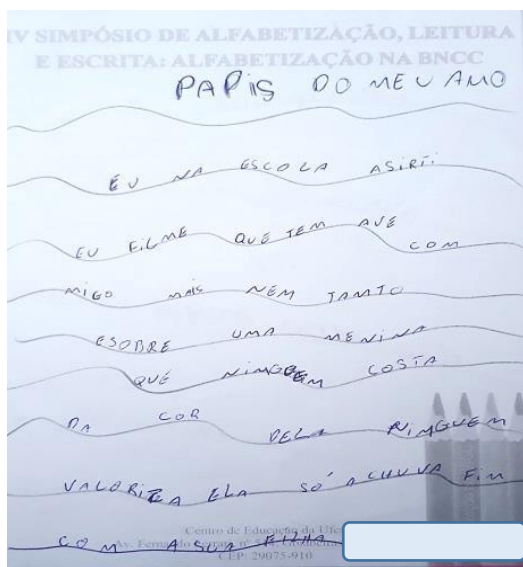 IV SIMPÓSIO DE ALFABETIZAÇÃO, LEITURA
E ESCRITA: ALFABETIZAÇÃO NA BNCC
PAPIS DO MEU AMO
EU NA ESCOLA ASIRTI
EU FILME QUE TEM AVE
COM
MIGO MAIS NEM TAMTO
ESOBRE UMA MENINA
QUE NIMGEM COSTA
DA COR DELA NIMGUEM
VALORIZEA ELA SÓ A CHUVA FIM
COM A SUA FILHA
Centro de Educação da Ufe
Av. Fernando Ferrari, nº
CEP: 29075-910